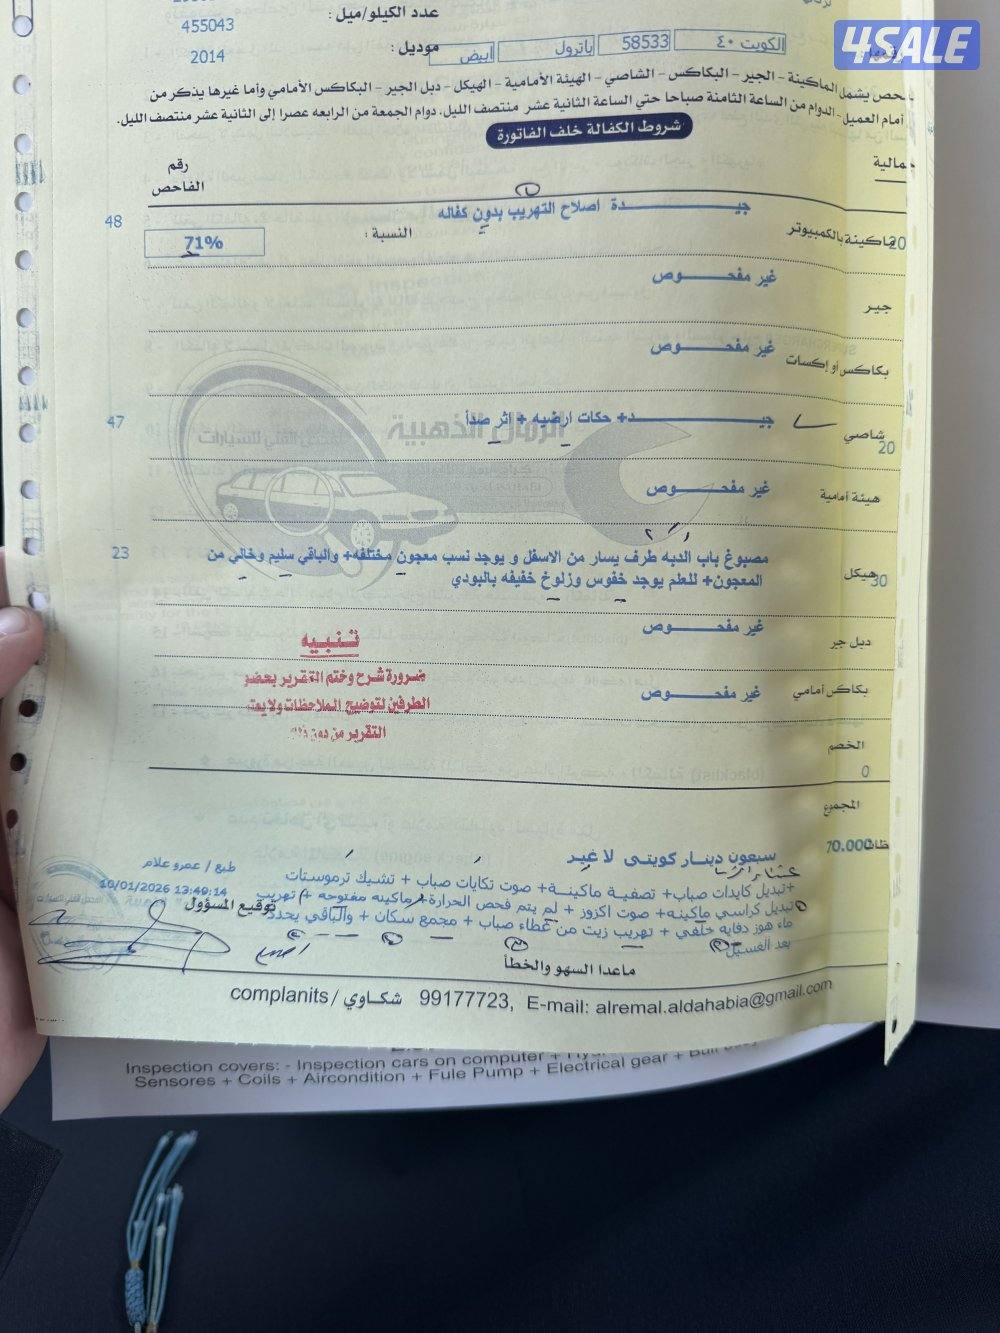 4SALE
عدد الكيلو/ميل :
455043
الكويت ٤٠
58533
باترول
أبيض
موديل :
2014
فحص يشمل الماكينة - الجير - البكاكس - الشاصي - الهيئة الأمامية - الهيكل - دبل الجير - البكاكس الأمامي وأما غيرها يذكر من
أمام العميل - الدوام من الساعة الثامنة صباحا حتي الساعة الثانية عشر منتصف الليل، دوام الجمعة من الرابعه عصرا إلى الثانية عشر منتصف الليل.
شروط الكفالة خلف الفاتورة
رقم
الفاحص
ماكينة بالكمبيوتر
20
جيـــدة اصلاح التهريب بدون كفاله
48
النسبة :
71%
جير
غير مفحـــوص
بكاكس أو إكسات
غير مفحـــوص
شاصي
20
جيـــد+ حكات ارضيه + اثر صدأ
47
الرمال الذهبية
هيئة أمامية
غير مفحـــوص
هيكل
30
مصبوغ باب الدبه طرف يسار من الاسفل و يوجد نسب معجون مختلفه+ والباقي سليم وخالي من
23
المعجون+ للعلم يوجد خفوس وزلوخ خفيفه بالبودي
دبل جير
غير مفحـــوص
بكاكس أمامي
غير مفحـــوص
تنبيه
ضرورة شرح وختم التقرير بحضور
الطرفين لتوضيح الملاحظات ولا يعتد
التقرير من دون ذلك
الخصم
0
المجموع
70.000
سبعون دينار كويتى لا غير
+تبديل كايدات صباب+ تصفية ماكينة+ صوت تكايات صباب + تشيك ترموستات
تبديل كراسي ماكينه+ صوت اكزوز + لم يتم فحص الحرارة+ماكينه مفتوحه + تهريب
ماء هوز دفايه خلفي + تهريب زيت من غطاء صباب + مجمع سكان + والباقي يحدد
بعد الغسيل
طبع / عمرو علام
10/01/2026 13:49:14
توقيع المسؤول
ماعدا السهو والخطأ
complanits / شكاوي 99177723, E-mail: alremal.aldahabia@gmail.com
Inspection covers: - Inspection cars on computer +
Sensores + Coils + Aircondition + Fule Pump + Electrical gear +